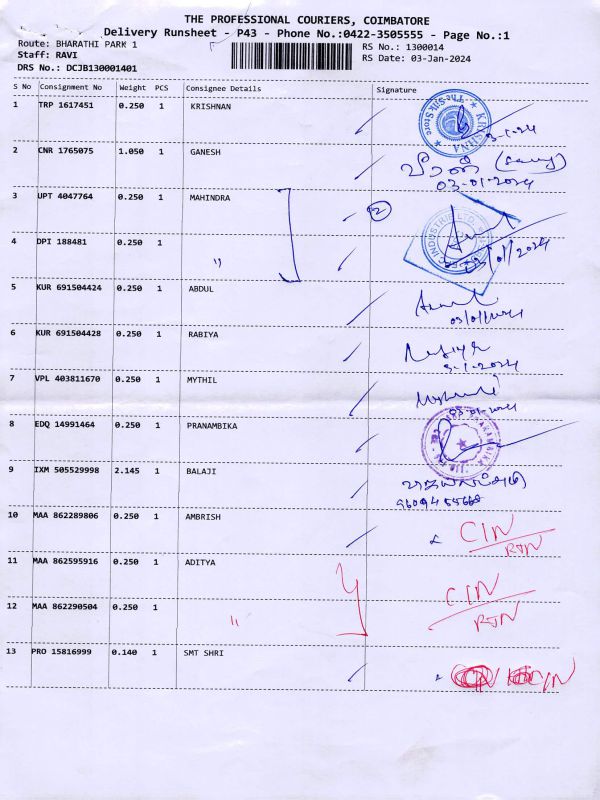 THE PROFESSIONAL COURIERS, COIMBATORE
Delivery Runsheet - P43 - Phone No.:0422-3505555 - Page No.:1
Route: BHARATHI PARK 1 RS No.: 1300014
Staff: RAVI RS Date: 03-Jan-2024
DRS No.: DCJB130001401
S No Consignment No Weight PCS Consignee Details Signature
1 TRP 1617451 0.250 1 KRISHNAN
KRISHNA The Silk Store
3-1-24
2 CNR 1765075 1.050 1 GANESH
03-01-2024
3 UPT 4047764 0.250 1 MAHINDRA 2
4 DPI 188481 0.250 1 "
03/01/2024
5 KUR 691504424 0.250 1 ABDUL
03/01/2024
6 KUR 691504428 0.250 1 RABIYA
3-1-2024
7 VPL 403811670 0.250 1 MYTHIL
03-01-2024
8 EDQ 14991464 0.250 1 PRANAMBIKA
9 IXM 505529998 2.145 1 BALAJI
10 MAA 862289806 0.250 1 AMBRISH CIN
RTN
11 MAA 862595916 0.250 1 ADITYA CIN
12 MAA 862290504 0.250 1 " RTN
13 PRO 15816999 0.140 1 SMT SHRI CIN